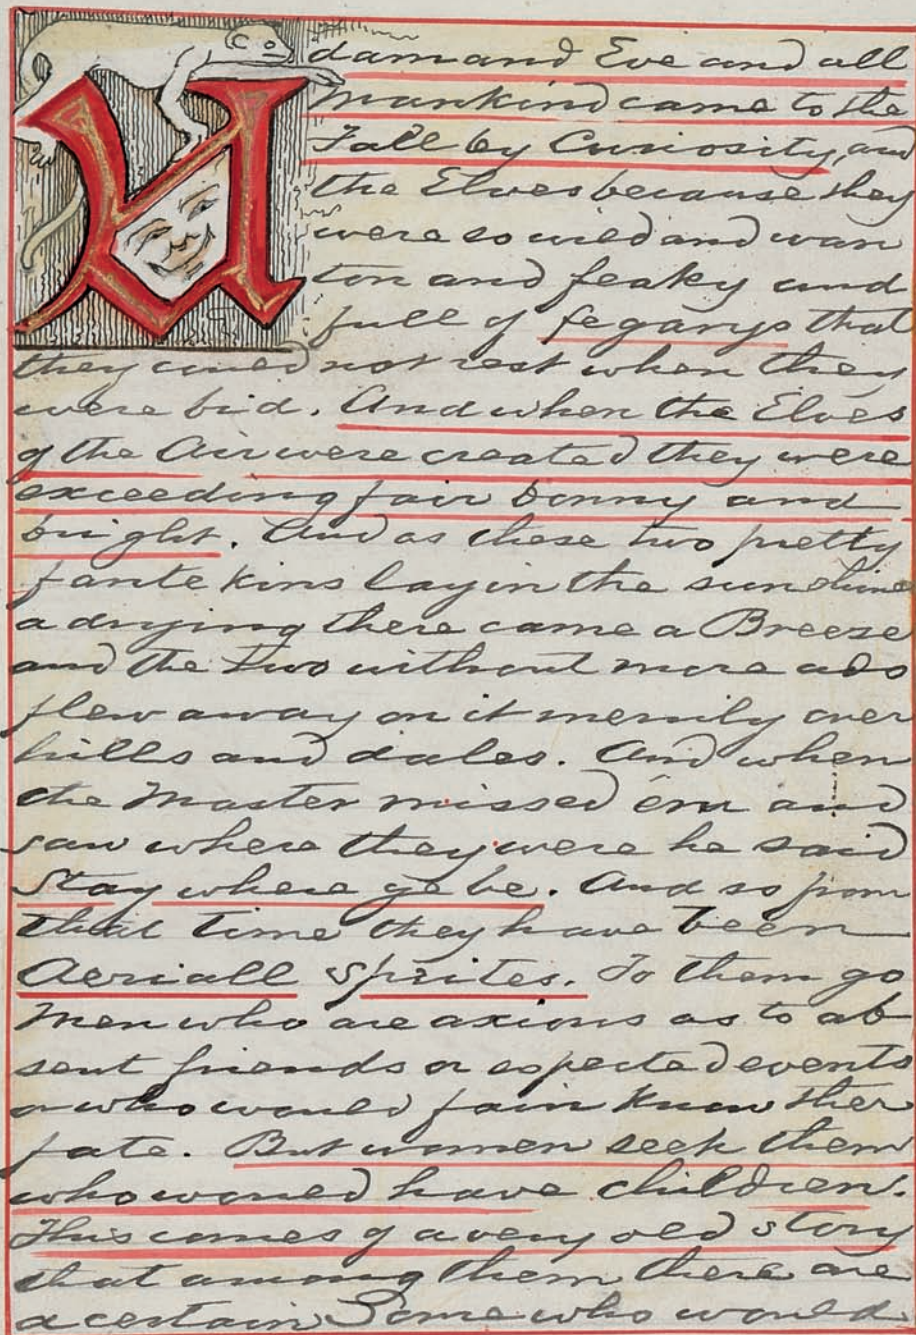 Adam and Eve and all
Mankind came to the
Fall by Curiosity, and
the Elves because they
were so wild and wan
ton and feaky and
full of fegarys that
they could not rest when they
were bid. And when the Elves
of the Air were created they were
exceeding fair bonny and
bright. And as these two pretty
fantekins lay in the sunshine
a drying there came a Breeze
and the two without more ado
flew away on it merrily over
hills and dales. And when
the Master missed em and
saw where they were he said
Stay where ye be. And so from
that time they have been
Aeriall Sprites. To them go
Men who are axious as to ab
sent friends or expected events
or who would fain know ther
fate. But women seek them
who would have children.
This comes of a very old story
that among them there are
a certain Some who would